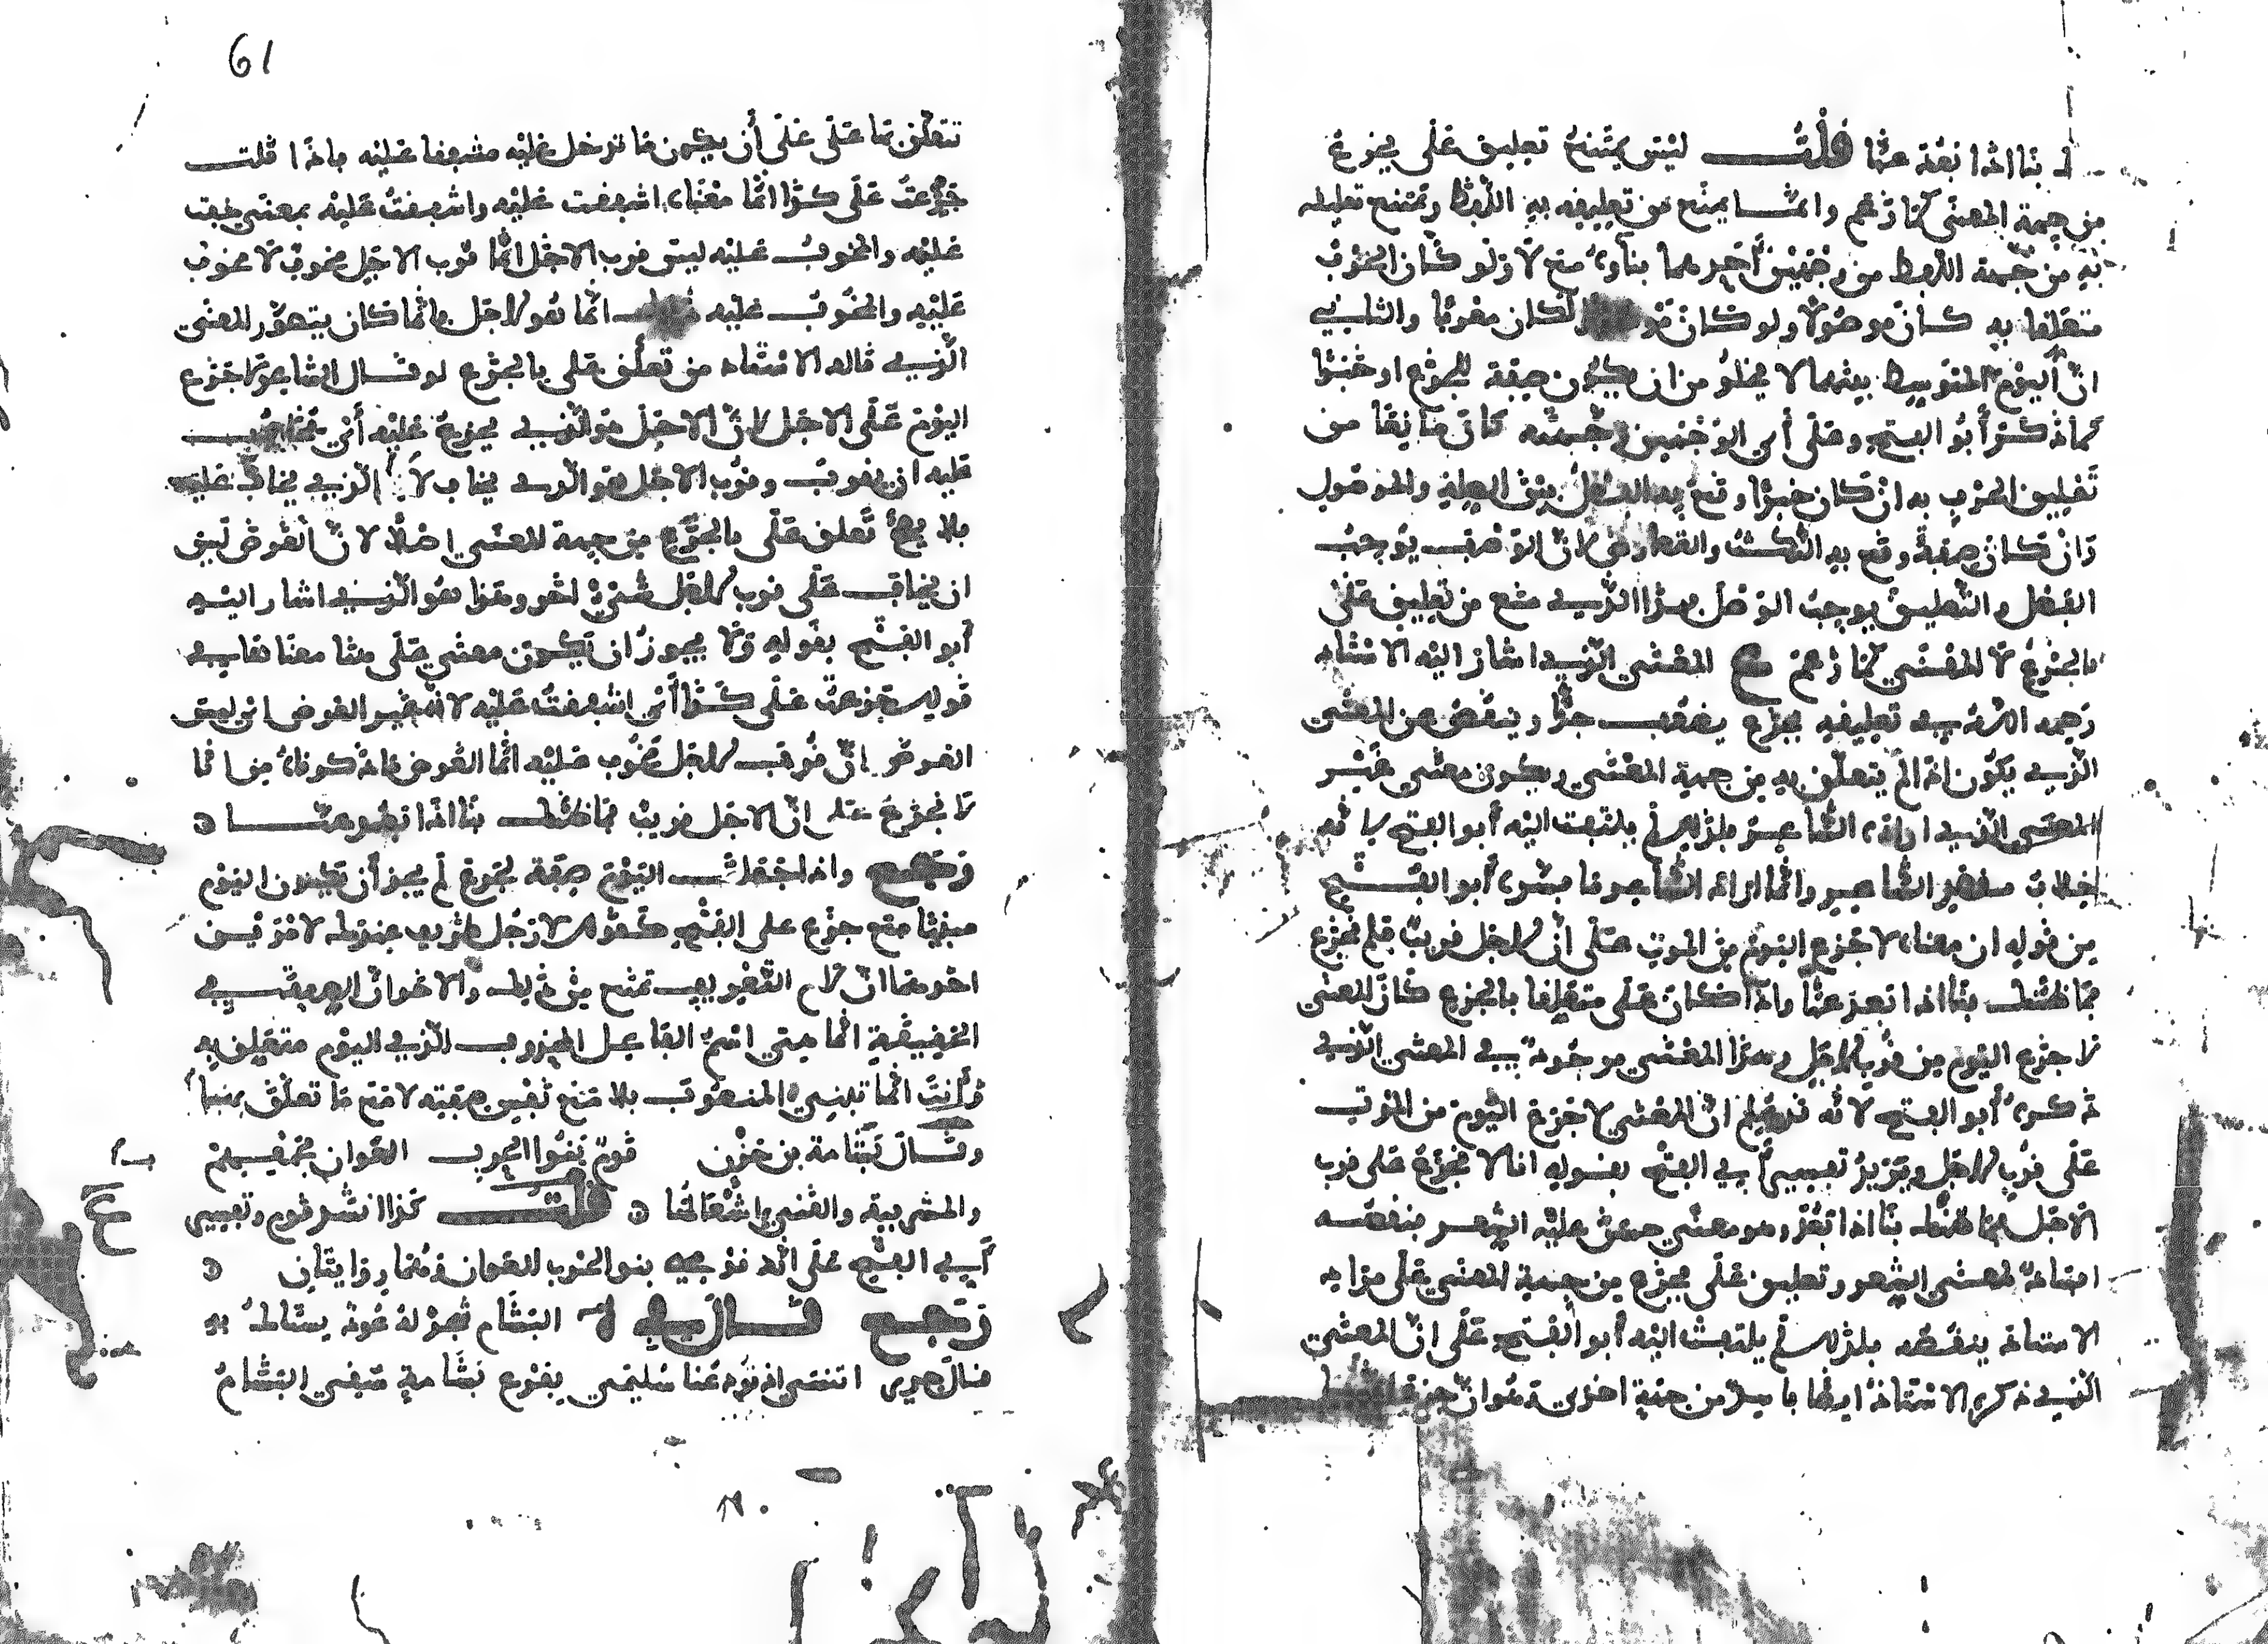 بنا اذا نعد عنا قلت ليس يمتنع تعليق على بجزع
من جهة المعنى كما زعم وانما يمتنع من تعليقه به اللفظ ويمتنع تعليله
به من جهة اللفظ من وجهين أحدهما بناؤه مع لا ولو كان الحرف
متعلقا به كان موصولا ولو كان لكان معربا والثاني
ان اليوم المتوسط بينهما لا يخلو من ان يكون صفة للجزع او خبرا
كما ذكر أبو الفتح وعلى أي الوجهين كان مانعا من
تعليق الحرف به ان كان خبرا وقع به الفصل بين الصلة والموصول
وان كان صفة وقع به لان الوصف يوجب
الفصل والتعليق يوجب الوصل بهذا الذي منع من تعليق على
بالجزع لا المعنى كما زعم مع المعنى الذي اشار اليه الاستاذ
رحمه الله في تعليقه بجزع يضعف جدا وينقص عن المعنى
الذي يكون اذا لم يتعلق به من جهة المعنى ويكون معنى غير
المعنى الذي اراده الشاعر فلذلك لم يلتفت اليه أبو الفتح لانه
خلاف مقصد الشاعر وانما اراد الشاعر ما فسره أبو الفتح
من قوله ان معناه لا جزع اليوم من الموت على ان الاجل قريب فلم نجزع
مما ظنك بنا اذا بعد عنا واذا كان على متعلقا بالجزع كان المعنى
لا جزع اليوم من قرب الاجل وهذا المعنى موجود في المعنى الذي
ذكره أبو الفتح لانه ان المعنى لا جزع اليوم من الموت
على قرب الاجل ويزيد تفسير أبي الفتح بقوله انا لا نجزع على قرب
الاجل فما ظنك بنا اذا بعد وهو معنى حسن عليه الشعر
لمعنى الشعر وتعليق على بجزع من جهة المعنى على مراد
الاستاذ ينقصه فلذلك لم يلتفت اليه أبو الفتح على ان المعنى
الذي ذكره الاستاذ ايضا فاسد من جهة اخرى وهو ان
61
تتعلق بما على على أن يكون ما تدخل عليه مشفقا عليه فاذا قلت
جزعت على كذا انما معناه اشفقت عليه واشفقت عليه بمعنى خفت
عليه والمخوف عليه ليس قرب الاجل انما قرب الاجل مخوف لا مخوف
عليه والمخوف عليه انما هو الاجل وانما كان يتصور المعنى
الذي قاله الاستاذ من تعلق على بالجزع لو قال الشاعر لا جزع
اليوم على الاجل لان الاجل هو الذي يجزع عليه أي
عليه ان يقرب وقرب الاجل هو الذي يخاف لا الذي يخاف عليه
فلا يصح تعلق على بالجزع من جهة المعنى اصلا لان الغرض ليس
ان يخاف على قرب الاجل شيء اخر وهذا هو الذي اشار اليه
أبو الفتح بقوله ولا يجوز ان يكون معنى على هنا معناها في
قولك جزعت على كذا أي اشفقت عليه لانه غير الغرض اي ليس
الغرض ان قرب الاجل مخوف عليه انما الغرض ما ذكرناه من انا
لا نجزع على ان الاجل قريب فما ظنك بنا اذا تبعد عنا ه
رجع واذا جعلت اليوم صفة لجزع لم يجز أن يكون اليوم
مبنيا مع جزع على الفتح كقولك لا رجل ظريف عندك لامرين
احدهما ان لام التعريف تمنع من ذلك والاخر ان الصفة في
الحقيقة انما هي اسم الفاعل المحذوف الذي اليوم متعلق به
وأنت انما تبني المنعوت بلا مع نفس صفته لا مع ما تعلق بهنا
وقال بشامة بن حزن قوم بنوا الحرب العوان بجمعهم
والمشرفية والقنى اشعالها ه قلت كذا انشد قوم وتفسير
أبي الفتح على انه قومي بنو الحرب العوان وهما روايتان ه
رجع قال في البشام شجر له عود يستاك به
قال جرير اتنسى اذ تودعنا سليمى بفرع بشامة سقي البشام